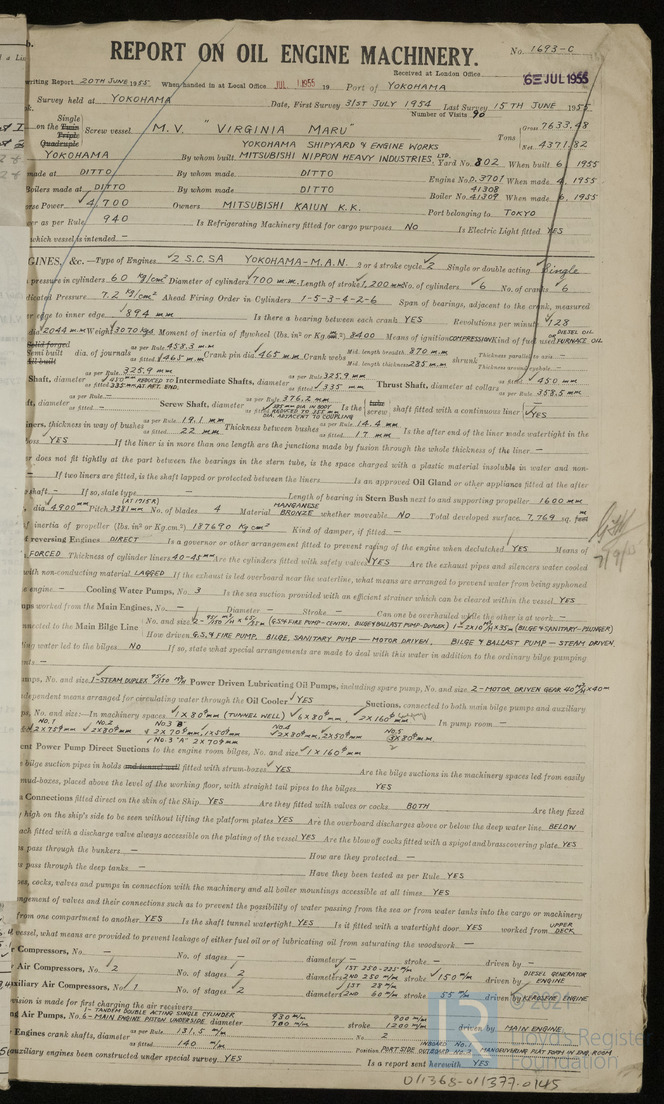 REPORT ON OIL ENGINE MACHINERY.
No. 1693-C
Received at London Office
6 JUL 1955
writing Report 20TH JUNE 1955 When handed in at Local Office JUL 1955 19 Port of YOKOHAMA
Survey held at YOKOHAMA Date, First Survey 31ST JULY 1954 Last Survey 15TH JUNE 1955
Number of Visits 90
Single
on the Twin Triple Quadruple Screw vessel M.V. "VIRGINIA MARU" Tons Gross 7633.48 Net 4371.82
YOKOHAMA SHIPYARD & ENGINE WORKS
YOKOHAMA By whom built MITSUBISHI NIPPON HEAVY INDUSTRIES, LTD. Yard No. 802 When built 6, 1955
made at DITTO By whom made DITTO Engine No. D.3701 When made 4, 1955
Boilers made at DITTO By whom made DITTO Boiler No. 41308 41309 When made 6, 1955
rse Power 4,700 Owners MITSUBISHI KAIUN K.K. Port belonging to TOKYO
er as per Rule 940 Is Refrigerating Machinery fitted for cargo purposes NO Is Electric Light fitted YES
which vessel is intended —
GINES, &c. —Type of Engines 2 S.C.SA YOKOHAMA-M.A.N. 2 or 4 stroke cycle 2 Single or double acting Single
pressure in cylinders 60 kg/cm² Diameter of cylinders 700 m.m. Length of stroke 1,200 mm No. of cylinders 6 No. of cranks 6
dicated Pressure 7.2 kg/cm² Ahead Firing Order in Cylinders 1-5-3-4-2-6 Span of bearings, adjacent to the crank, measured
er edge to inner edge 894 mm Is there a bearing between each crank YES Revolutions per minute 128
dia. 2044 mm Weight 3070 kgs Moment of inertia of flywheel (lbs. in² or Kg.cm²) 8400 Means of ignition COMPRESSION Kind of fuel used DIESEL OIL OR FURNACE OIL
Solid forged
Semi built dia. of journals as per Rule 458.3 mm as fitted 465 mm Crank pin dia. 465 mm Crank webs Mid. length breadth 870 mm Mid. length thickness 285 mm shrunk Thickness parallel to axis — Thickness around eyehole —
All built
Shaft, diameter as per Rule 325.9 mm as fitted 450 mm REDUCED TO 335 MM AT AFT. END. Intermediate Shafts, diameter as per Rule 325.9 mm as fitted 335 mm Thrust Shaft, diameter at collars as fitted 450 mm as per Rule 358.5 mm
aft, diameter as per Rule — as fitted — Screw Shaft, diameter as per Rule 376.2 mm as fitted 385 MM DIA. IN BODY REDUCED TO 355 MM DIA. ADJACENT TO COUPLING Is the tube screw shaft fitted with a continuous liner YES
iners, thickness in way of bushes as per Rule 19.1 mm as fitted 22 mm Thickness between bushes as per Rule 14.4 mm as fitted 17 mm Is the after end of the liner made watertight in the
boss YES If the liner is in more than one length are the junctions made by fusion through the whole thickness of the liner —
er does not fit tightly at the part between the bearings in the stern tube, is the space charged with a plastic material insoluble in water and non-
— If two liners are fitted, is the shaft lapped or protected between the liners — Is an approved Oil Gland or other appliance fitted at the after
shaft — If so, state type — Length of bearing in Stern Bush next to and supporting propeller 1600 mm
dia. 4900 mm Pitch 3581 mm (AT 1715 R) No. of blades 4 Material MANGANESE BRONZE whether moveable NO Total developed surface 7.769 sq. feet m
f inertia of propeller (lbs. in² or Kg.cm²) 187690 kg cm² Kind of damper, if fitted —
d reversing Engines DIRECT Is a governor or other arrangement fitted to prevent racing of the engine when declutched YES Means of
FORCED Thickness of cylinder liners 40-45 mm Are the cylinders fitted with safety valves YES Are the exhaust pipes and silencers water cooled
with non-conducting material LAGGED If the exhaust is led overboard near the waterline, what means are arranged to prevent water from being syphoned
e engine — Cooling Water Pumps, No. 3 Is the sea suction provided with an efficient strainer which can be cleared within the vessel YES
mps worked from the Main Engines, No. — Diameter — Stroke — Can one be overhauled while the other is at work —
nnected to the Main Bilge Line No. and size (GS & FIRE PUMP-CENTRI, BILGE & BALLAST PUMP-DUPLEX) 1-2×10 m³/H × 35m (BILGE & SANITARY-PLUNGER)
How driven G.S. & FIRE PUMP. BILGE, SANITARY PUMP — MOTOR DRIVEN, BILGE & BALLAST PUMP — STEAM DRIVEN
ing water led to the bilges NO If so, state what special arrangements are made to deal with this water in addition to the ordinary bilge pumping
ents —
umps, No. and size 1-STEAM DUPLEX Power Driven Lubricating Oil Pumps, including spare pump, No. and size 2-MOTOR DRIVEN GEAR 40 m³/H × 40m
dependent means arranged for circulating water through the Oil Cooler YES Suctions, connected to both main bilge pumps and auxiliary
ps, No. and size:—In machinery spaces 1×80 mm (TUNNEL WELL) 6×80 mm, 2×160 mm In pump room —
No.1 2×75 mm No.2 2×80 mm No.3 "B" 2×70 mm, 1×50 mm No.3 "A" 2×70 mm No.4 2×80 mm, 2×50 mm No.5 2×80 mm
ent Power Pump Direct Suctions to the engine room bilges, No. and size 1×160 mm
bilge suction pipes in holds and tunnel well fitted with strum-boxes YES Are the bilge suctions in the machinery spaces led from easily
mud-boxes, placed above the level of the working floor, with straight tail pipes to the bilges YES
Connections fitted direct on the skin of the Ship YES Are they fitted with valves or cocks BOTH Are they fixed
high on the ship's side to be seen without lifting the platform plates YES Are the overboard discharges above or below the deep water line BELOW
ach fitted with a discharge valve always accessible on the plating of the vessel YES Are the blow off cocks fitted with a spigot and brass covering plate YES
s pass through the bunkers — How are they protected —
s pass through the deep tanks — Have they been tested as per Rule YES
pes, cocks, valves and pumps in connection with the machinery and all boiler mountings accessible at all times YES
angement of valves and their connections such as to prevent the possibility of water passing from the sea or from water tanks into the cargo or machinery
from one compartment to another YES Is the shaft tunnel watertight YES Is it fitted with a watertight door YES worked from UPPER DECK
vessel, what means are provided to prevent leakage of either fuel oil or of lubricating oil from saturating the woodwork —
r Compressors, No. — No. of stages — diameters — stroke — driven by —
Air Compressors, No. 2 No. of stages 2 diameters 1ST 250-225 m/m 2ND 250 m/m stroke 150 m/m driven by DIESEL GENERATOR ENGINE
uxiliary Air Compressors, No. 1 No. of stages 2 diameters 1ST 28 m/m 2ND 60 m/m stroke 55 m/m driven by KEROSENE ENGINE
ovision is made for first charging the air receivers
ng Air Pumps, No. 1-TANDEM DOUBLE ACTING SINGLE CYLINDER 6-MAIN ENGINE PISTON UNDERSIDE diameter 930 m/m 700 m/m stroke 900 m/m 1200 m/m driven by MAIN ENGINE
Engines crank shafts, diameter as per Rule 131.5 m/m as fitted 140 m/m No. 2 Position INBOARD No.1 PORT SIDE OUTBOARD No.2 MANOEUVERING PLATFORM IN ENG. ROOM
auxiliary engines been constructed under special survey YES Is a report sent herewith YES
7/9/55
© 2021
LR
Lloyd's Register
Foundation
011368-011377-0145